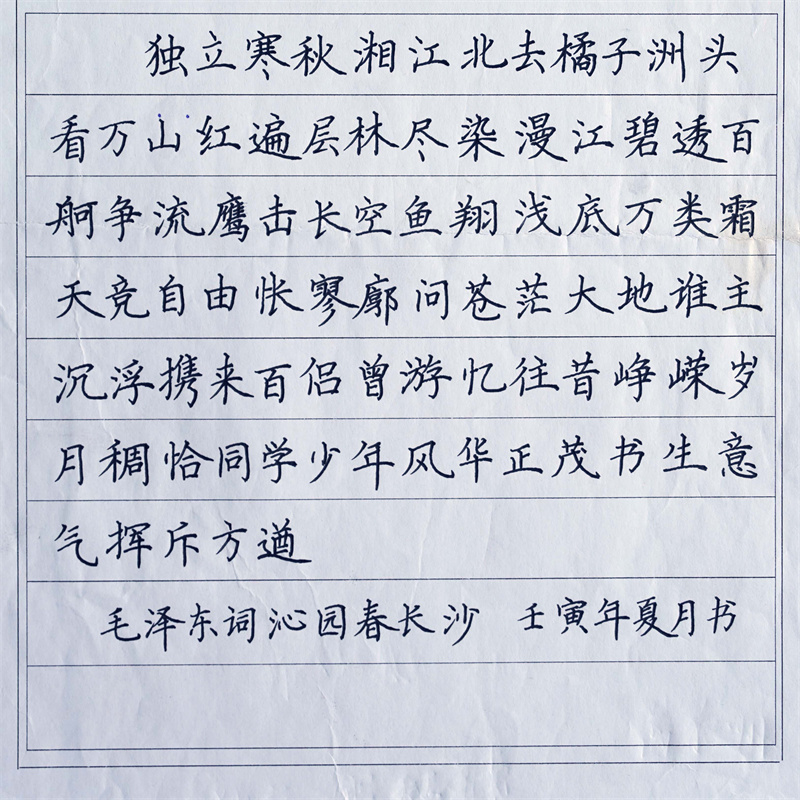 独立寒秋湘江北去橘子洲头
看万山红遍层林尽染漫江碧透百
舸争流鹰击长空鱼翔浅底万类霜
天竞自由怅寥廓问苍茫大地谁主
沉浮携来百侣曾游忆往昔峥嵘岁
月稠恰同学少年风华正茂书生意
气挥斥方遒
毛泽东词沁园春长沙 壬寅年夏月书